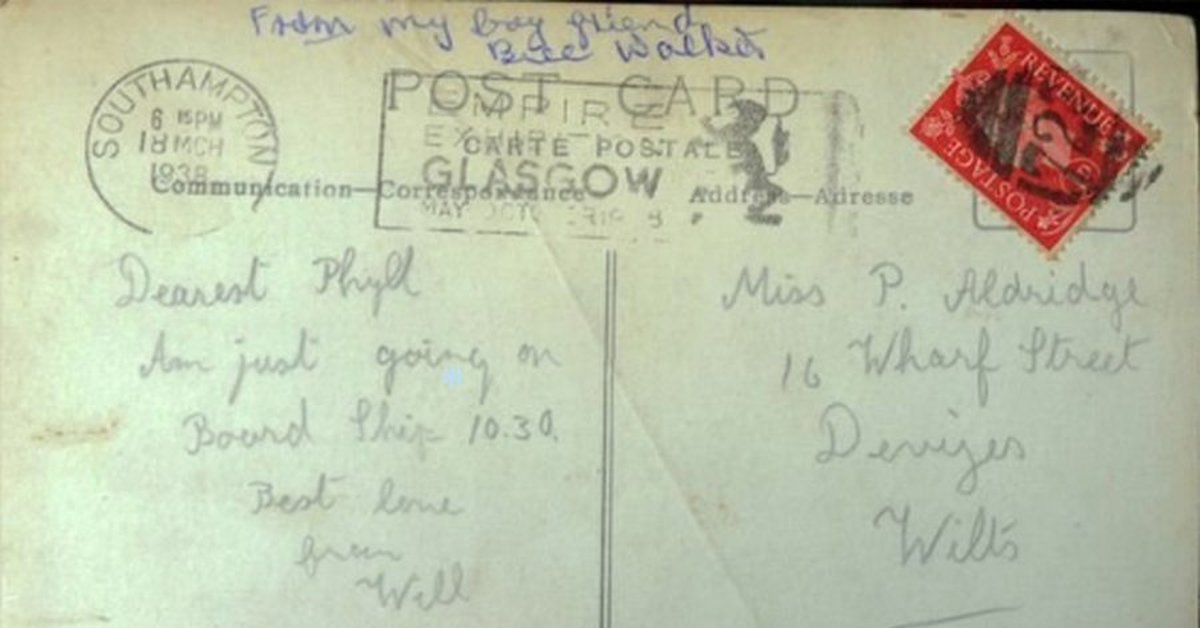 From my boy friend
Bill Walker
POST CARD
CARTE POSTALE
Communication—Correspondance
Address—Adresse
SOUTHAMPTON
6 15 PM
18 MCH
1938
EMPIRE
GLASGOW
MAY
REVENUE
POSTAGE
Dearest Phyll
Am just going on
Board Ship 10.30.
Best love
from
Will
Miss P. Aldridge
16 Wharf Street
Devizes
Wilts